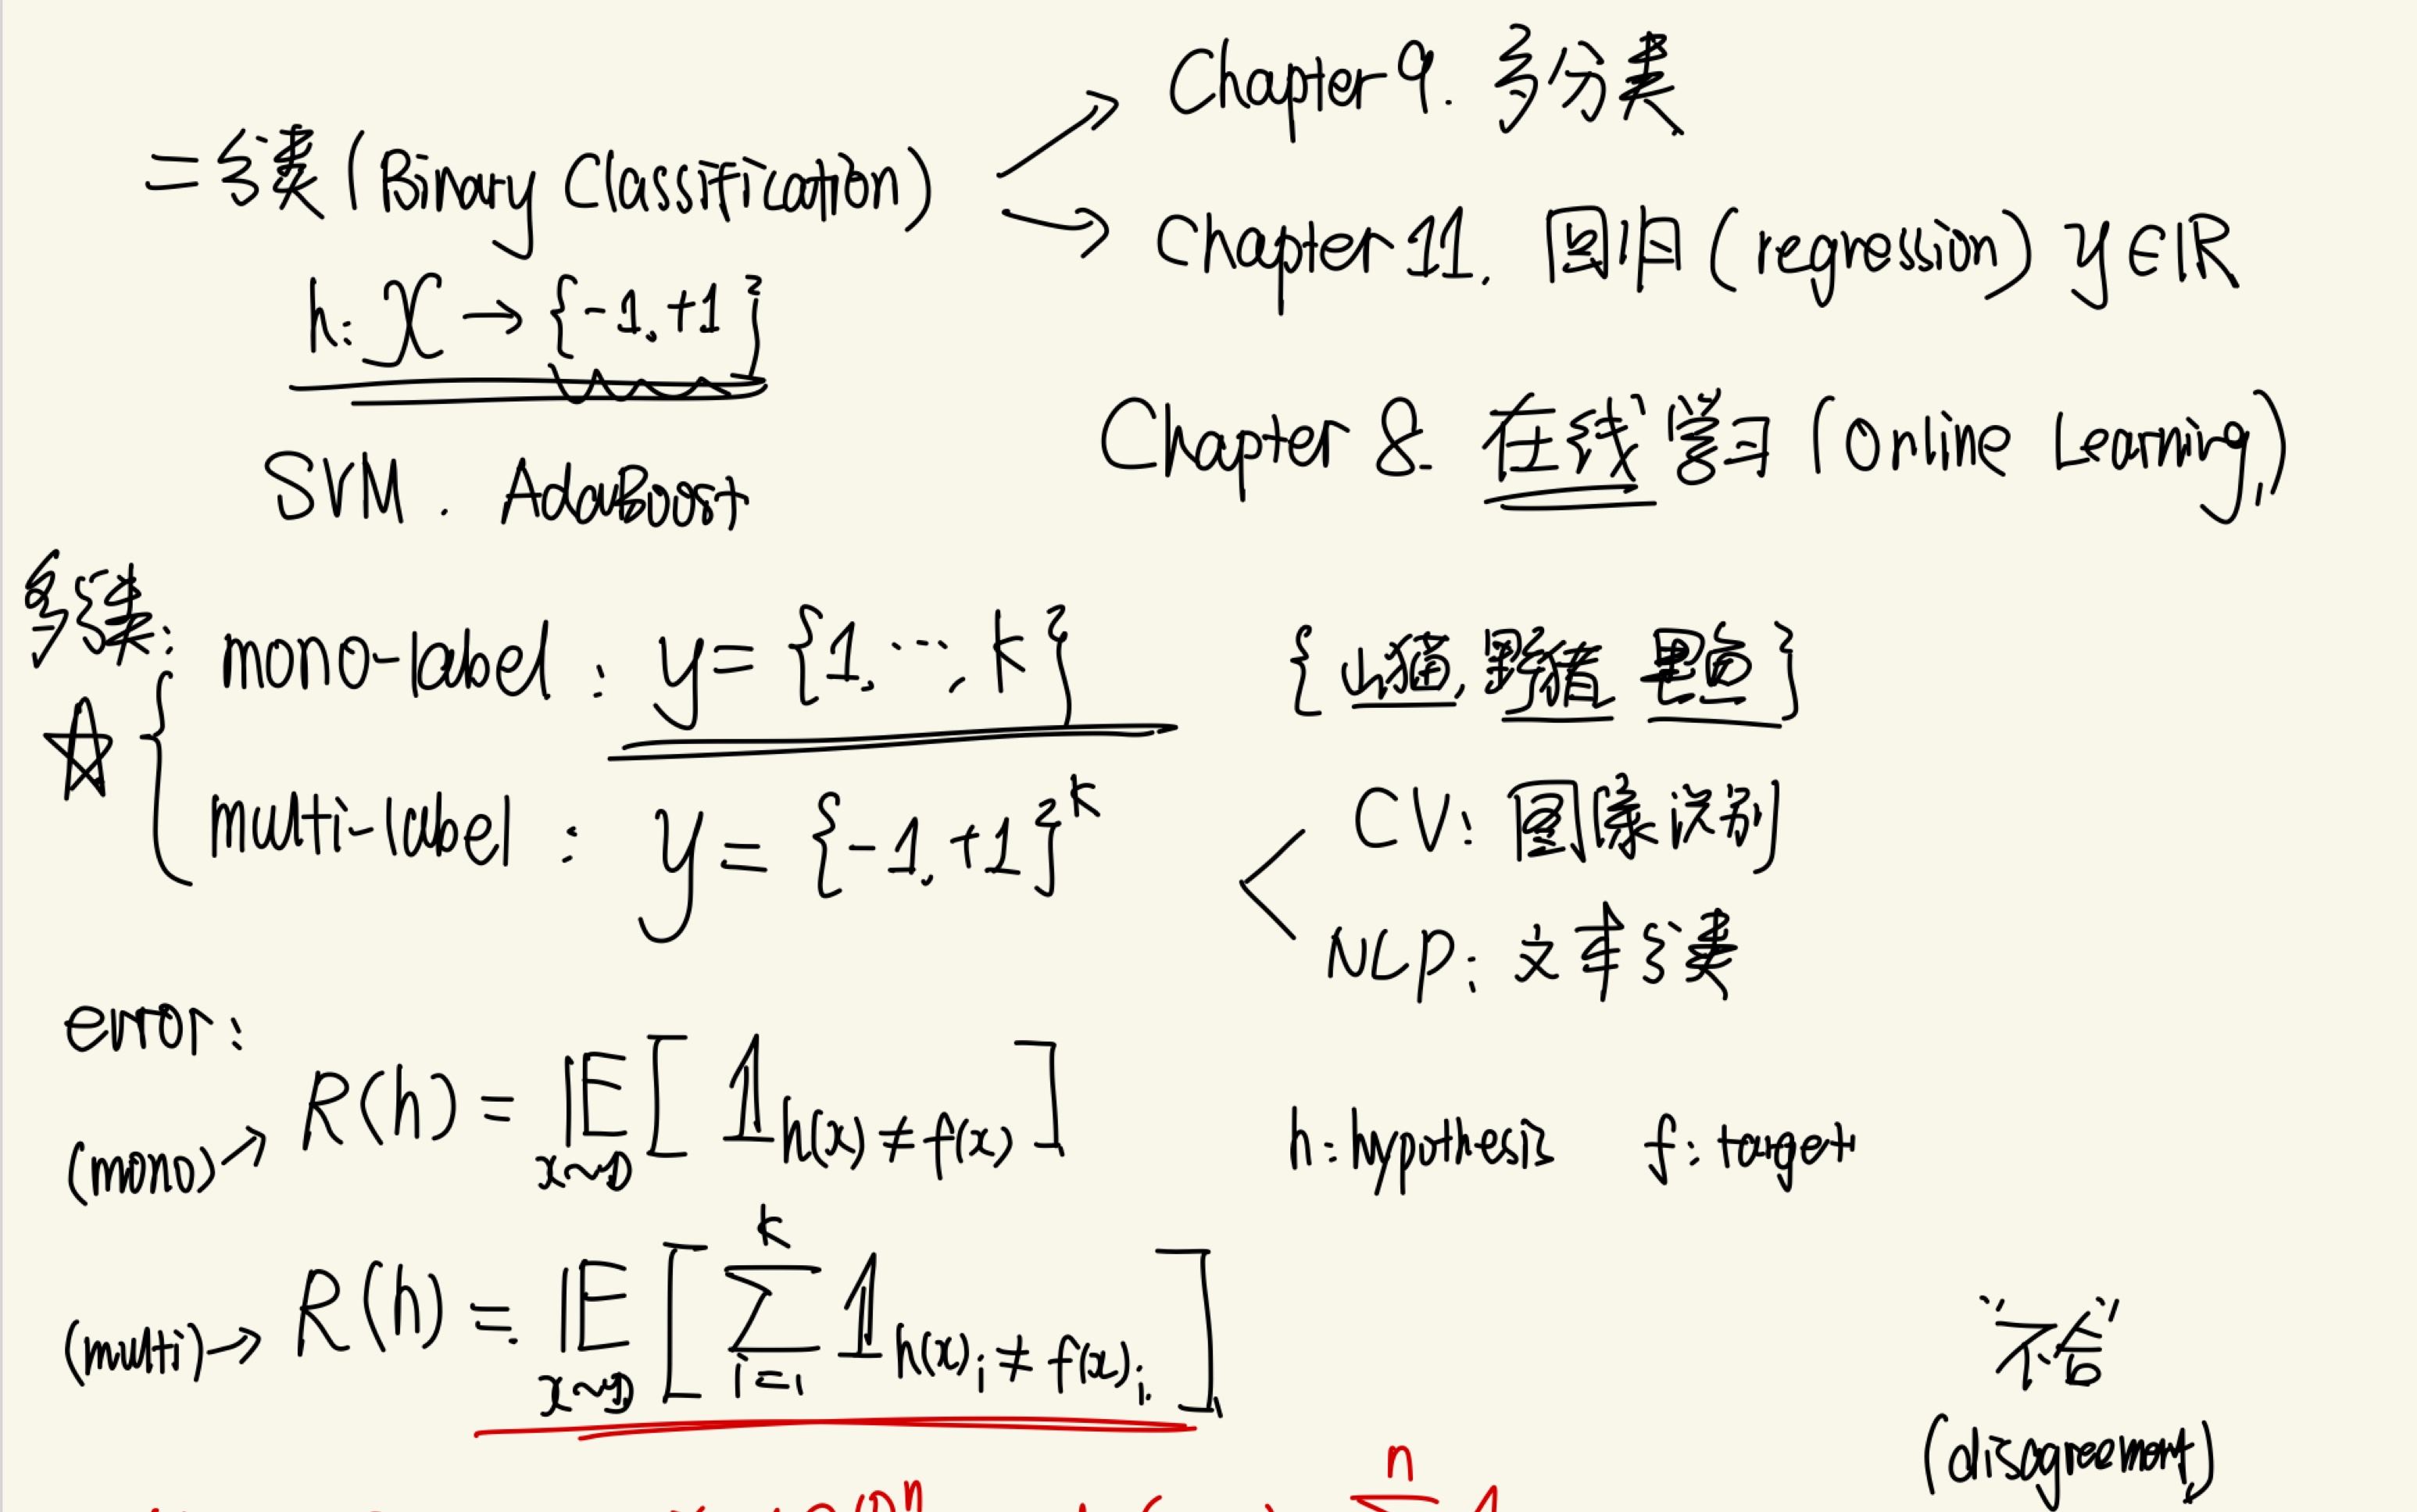 二分类 (Binary Classification)
Chapter 9. 多分类
Chapter 11. 回归 (regression) y∈ℝ
h: 𝒳 → {-1, +1}
SVM . AdaBoost
Chapter 8. 在线学习 (Online Learning)
多分类:
mono-label : y = {1, ..., k}
{山猫, 野猪
multi-label : y = {-1, +1}^k
CV: 图像识别
NLP: 文本分类
error:
(mono)→ R(h) = 𝔼_{x~D} [ 1_{h(x)≠f(x)} ]
h: hypothesis f: target
(multi)→ R(h) = 𝔼_{x~D} [ ∑_{i=1}^{k} 1_{h(x)_i ≠ f(x)_i} ]
"不合"
(disagreement)